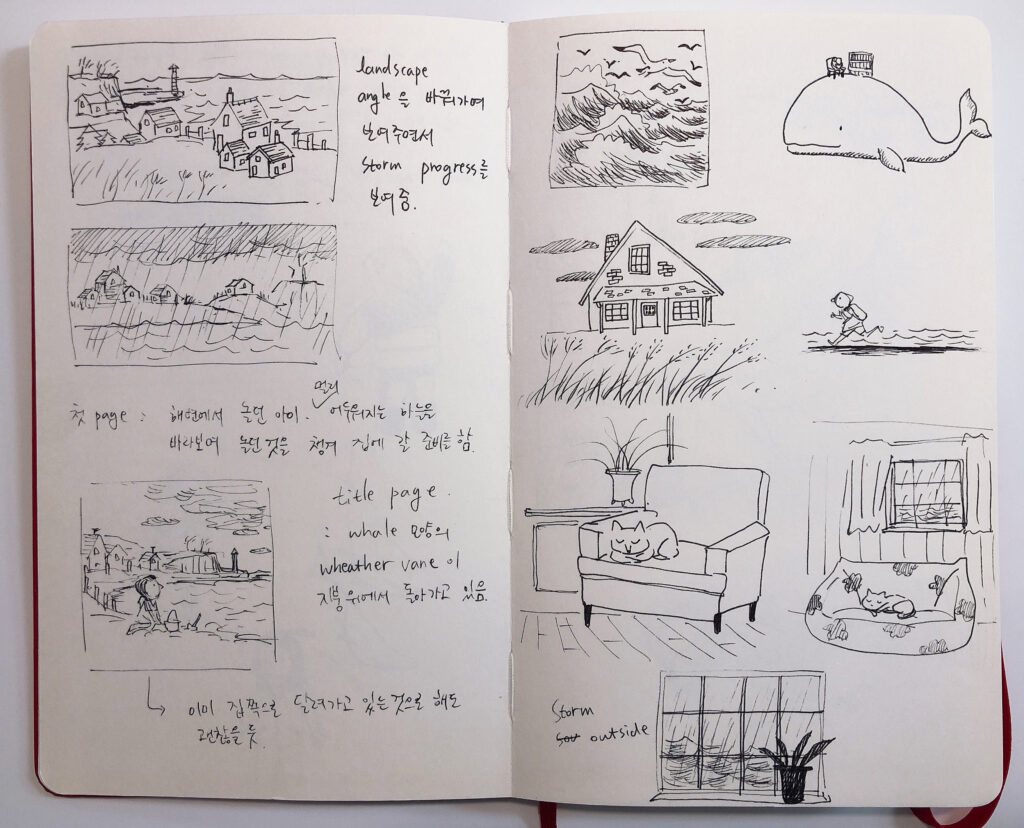 landscape
angle을 바꿔가며
보여주면서
storm progress를
보여줌.
멀리
첫 page : 해변에서 놀던 아이. 어두워지는 하늘을
바라보며 놀던 것을 챙겨 집에 갈 준비를 함.
title page.
: whale 모양의
wheather vane 이
지붕 위에서 돌아가고 있음.
이미 집쪽으로 달려가고 있는것으로 해도
괜찮을 듯.
Storm
outside